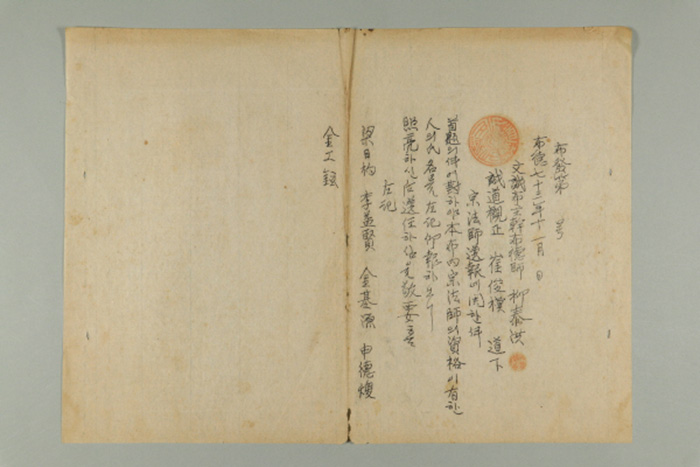 布發第 号
布德七十三年十一月 日
文誠布主幹布德師 柳泰洪
誠道觀正 崔俊模 道下
宗法師選報에 関한 件
首題의 件에 對하야 本布內 宗法師의 資格이 有한
人의 氏名을 左記 仰報하오니
照亮하시 選任하심을 敬要
左記
梁日杓 李益賢 金基源 申德煥
金 鉉